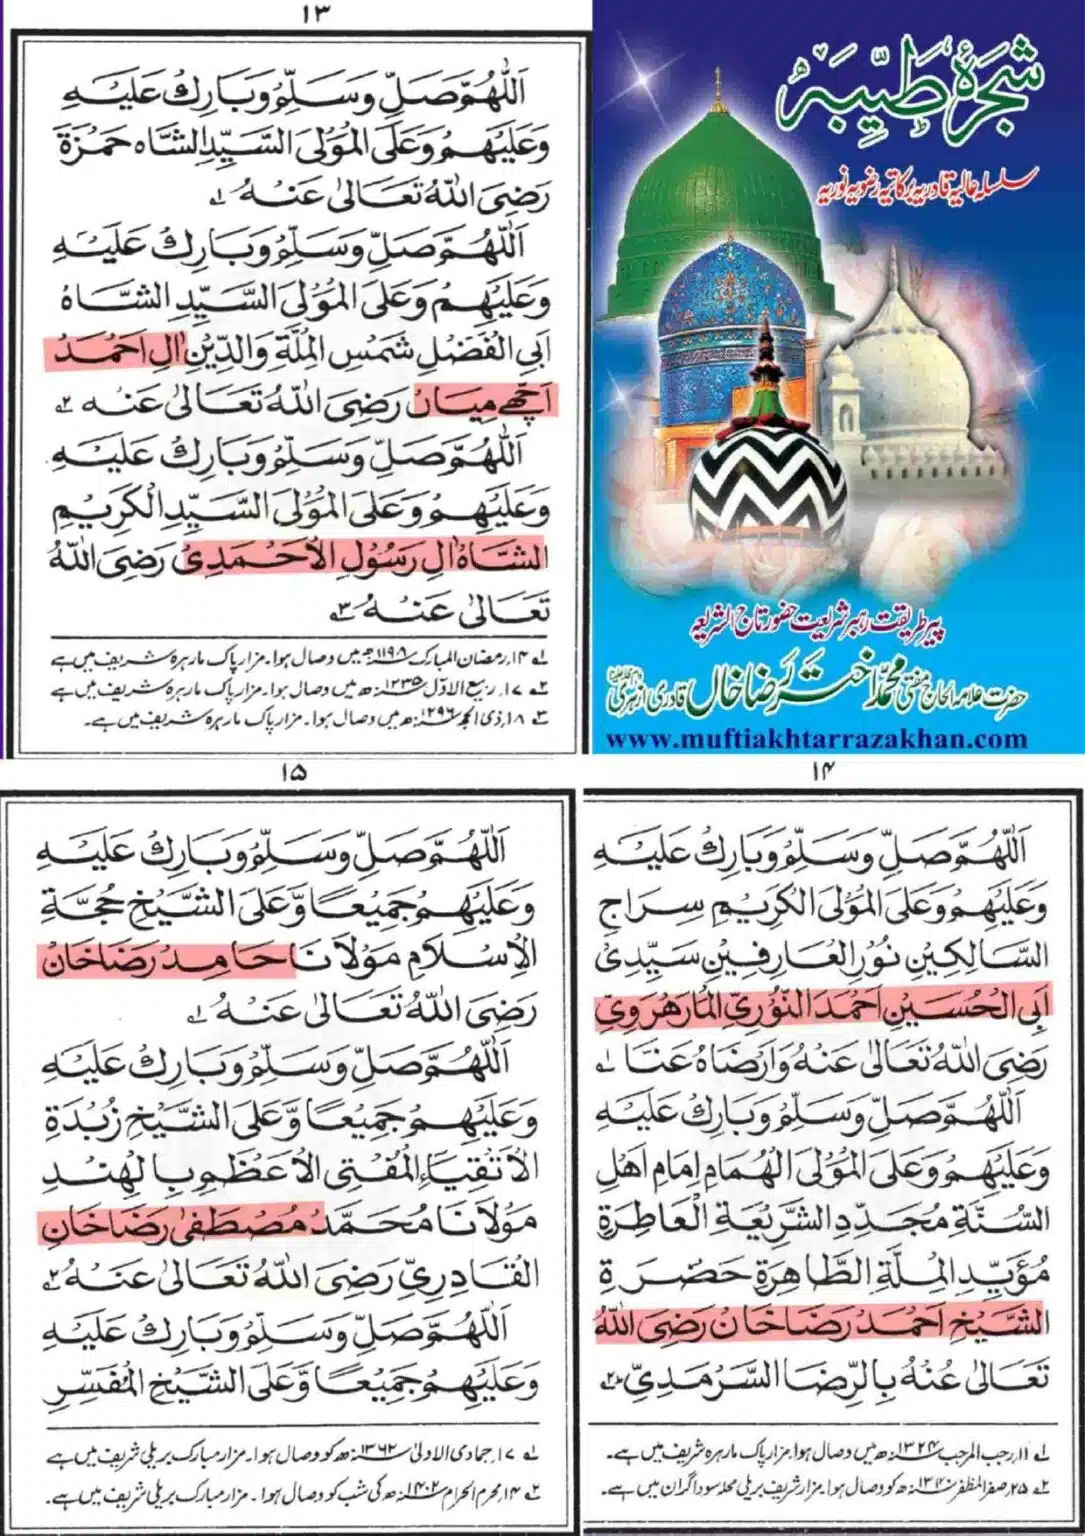 ۱۳
اَللّٰهُمَّ صَلِّ وَسَلِّمْ وَبَارِكْ عَلَيْهِ
وَعَلَيْهِمْ وَعَلَى الْمَوْلَى السَّيِّدِ الشَّاه حَمْزَةَ
رَضِىَ اللّٰهُ تَعَالىٰ عَنْهُ ۱ے
اَللّٰهُمَّ صَلِّ وَسَلِّمْ وَبَارِكْ عَلَيْهِ
وَعَلَيْهِمْ وَعَلَى الْمَوْلَى السَّيِّدِ الشَّاهْ
اَبِى الْفَضْلِ شَمْسِ الْمِلَّةِ وَالدِّيْنِ اٰلِ اَحْمَدْ
اَچّھے مِیَاں رَضِىَ اللّٰهُ تَعَالىٰ عَنْهُ ۲ے
اَللّٰهُمَّ صَلِّ وَسَلِّمْ وَبَارِكْ عَلَيْهِ
وَعَلَيْهِمْ وَعَلَى الْمَوْلَى السَّيِّدِ الْكَرِيْمِ
الشَّاهْ اٰلِ رَسُوْلِ الْاَحْمَدِىْ رَضِىَ اللّٰهُ
تَعَالىٰ عَنْهُ ۳ے
۱ے ۱۴؍رمضان المبارک ۱۱۹۸؁ھ میں وصال ہوا۔ مزار پاک مارہرہ شریف میں ہے
۲ے ۱۷؍ربیع الاوّل ۱۲۳۵؁ھ میں وصال ہوا۔ مزار پاک مارہرہ شریف میں ہے
۳ے ۱۸؍ذی الحجہ ۱۲۹۶؁ھ میں وصال ہوا۔ مزار پاک مارہرہ شریف میں ہے۔
شجرۂ طیّبہ
سلسلہ عالیہ قادریہ برکاتیہ رضویہ نوریہ
پیر طریقت رہبر شریعت حضور تاج الشریعہ
حضرت علامہ الحاج مفتی محمد اختر رضا خاں قادری ازہری
www.muftiakhtarrazakhan.com
۱۴
اَللّٰهُمَّ صَلِّ وَسَلِّمْ وَبَارِكْ عَلَيْهِ
وَعَلَيْهِمْ وَعَلَى الْمَوْلَى الْكَرِيْمِ سِرَاجِ
السَّالِكِيْنَ نُوْرِ الْعَارِفِيْنَ سَيِّدِىْ
اَبِى الْحُسَيْنِ اَحْمَدَ النُّوْرِىِّ الْمَارَهْرَوِىِّ
رَضِىَ اللّٰهُ تَعَالىٰ عَنْهُ وَاَرْضَاهُ عَنَّا ۱ے
اَللّٰهُمَّ صَلِّ وَسَلِّمْ وَبَارِكْ عَلَيْهِ
وَعَلَيْهِمْ وَعَلَى الْمَوْلَى الْهُمَامِ اِمَامِ اَهْلِ
السُّنَّةِ مُجَدِّدِ الشَّرِيْعَةِ الْعَاطِرَةِ
مُؤَيِّدِ الْمِلَّةِ الطَّاهِرَةِ حَضْرَةِ
الشَّيْخِ اَحْمَدْ رَضَا خَانْ رَضِىَ اللّٰهُ
تَعَالىٰ عَنْهُ بِالرِّضَا السَّرْمَدِىْ ۲ے
۱ے ۱۱؍رجب المرجب ۱۳۲۴؁ھ میں وصال ہوا۔ مزار پاک مارہرہ شریف میں ہے۔
۲ے ۲۵؍صفر المظفر ۱۳۴۰؁ھ کو وصال ہوا۔ مزار شریف بریلی محلہ سوداگران میں ہے۔
۱۵
اَللّٰهُمَّ صَلِّ وَسَلِّمْ وَبَارِكْ عَلَيْهِ
وَعَلَيْهِمْ جَمِيْعًا وَّعَلَى الشَّيْخِ حُجَّةِ
الْاِسْلَامِ مَوْلَانَا حَامِدْ رَضَا خَانْ
رَضِىَ اللّٰهُ تَعَالىٰ عَنْهُ ۱ے
اَللّٰهُمَّ صَلِّ وَسَلِّمْ وَبَارِكْ عَلَيْهِ
وَعَلَيْهِمْ جَمِيْعًا وَّعَلَى الشَّيْخِ زُبْدَةِ
الْاَتْقِيَاءِ الْمُفْتِى الْاَعْظَمِ بِالْهِنْدِ
مَوْلَانَا مُحَمَّدْ مُصْطَفىٰ رَضَا خَانِ
الْقَادِرِىِّ رَضِىَ اللّٰهُ تَعَالىٰ عَنْهُ ۲ے
اَللّٰهُمَّ صَلِّ وَسَلِّمْ وَبَارِكْ عَلَيْهِ
وَعَلَيْهِمْ جَمِيْعًا وَّعَلَى الشَّيْخِ الْمُفَسِّرِ
۱ے ۱۷؍جمادی الاولیٰ ۱۳۶۲؁ھ کو وصال ہوا۔ مزار مبارک بریلی شریف میں ہے
۲ے ۱۴؍محرم الحرام ۱۴۰۲؁ھ کی شب کو وصال ہوا۔ مزار مبارک بریلی شریف میں ہے۔